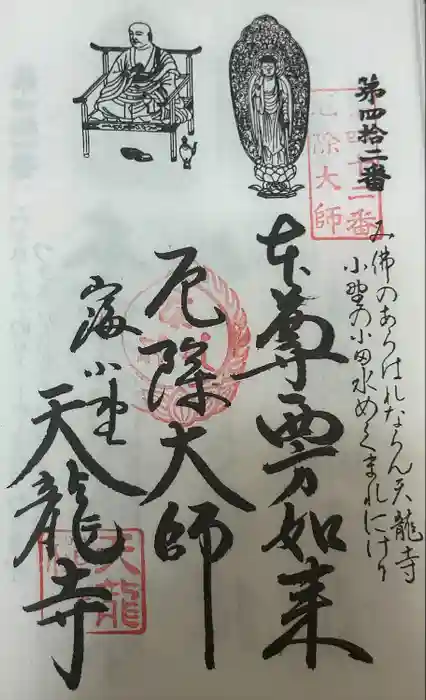 第四拾二番
み佛のあらはれならん天龍寺
小野の小田水めくまれにけり
本尊両方如来
厄除大師
小野
天龍寺
四十二番
厄除大師
天龍